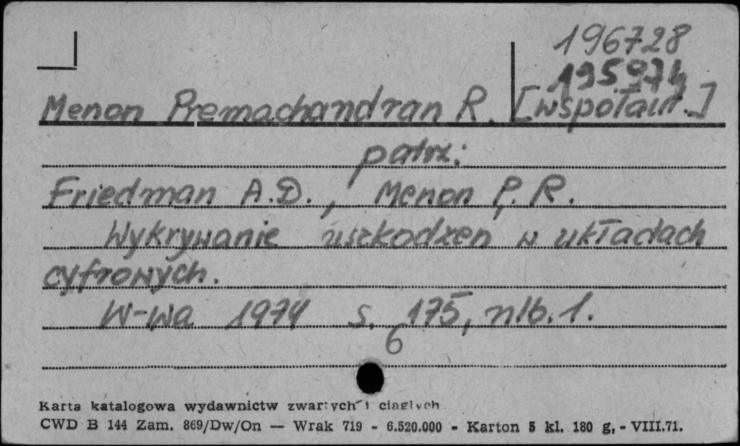 196728
195974
Menon Premachandran R. [współaut.]
patrz:
Friedman A.D., Menon P.R.
Wykrywanie uszkodzeń w układach
cyfrowych.
W-wa 1974 s. 175, nlb. 1.
6
Karta katalogowa wydawnictw zwartych i ciągłych
CWD B 144 Zam. 869/Dw/On — Wrak 719 - 6.520.000 - Karton 5 kl. 180 g, - VIII.71.